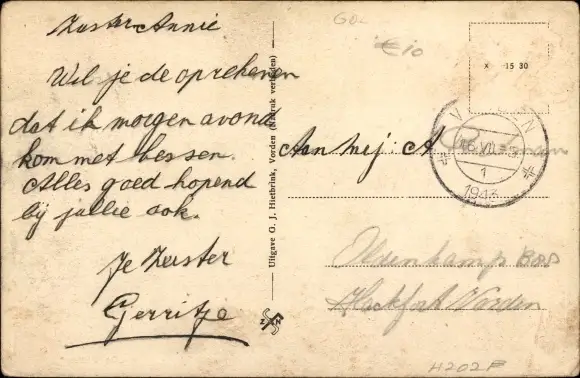 Zuster Annie
Wil je de oprekenen
dat ik morgen avond
kom met bessen.
Alles goed hopend
bij jullie ook.
Je Zuster
Gerritje
Uitgave G. J. Hietbrink, Vorden (Nadruk verboden)
Z N
Go-
€ 10
x 15 30
V N
16 VII
1
1943
Aan mej: A
Oldenkamp
Hackfort Vorden
H202F